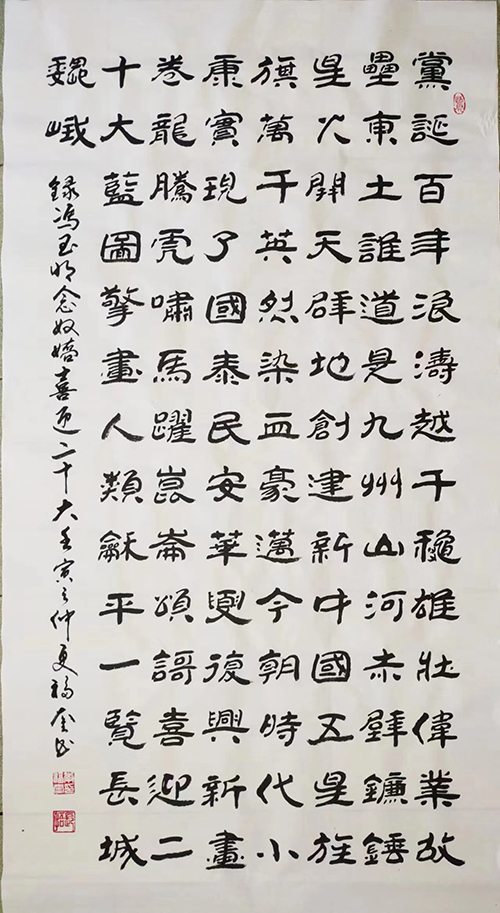 黨誕百年浪濤越千穐雄壯偉業故
壘東土誰道是九州山河赤壁鐮錘
星火開天辟地創建新中國五星旌
旗萬千英烈染血豪邁今朝時代小
康實現了國泰民安華夏復興新畫
卷龍騰虎嘯馬躍崑崙頌謌喜迎二
十大藍圖擎畫人類龢平一覽長城
巍峨
録馮玉明念奴嬌喜迎二十大壬寅之仲夏福奎书